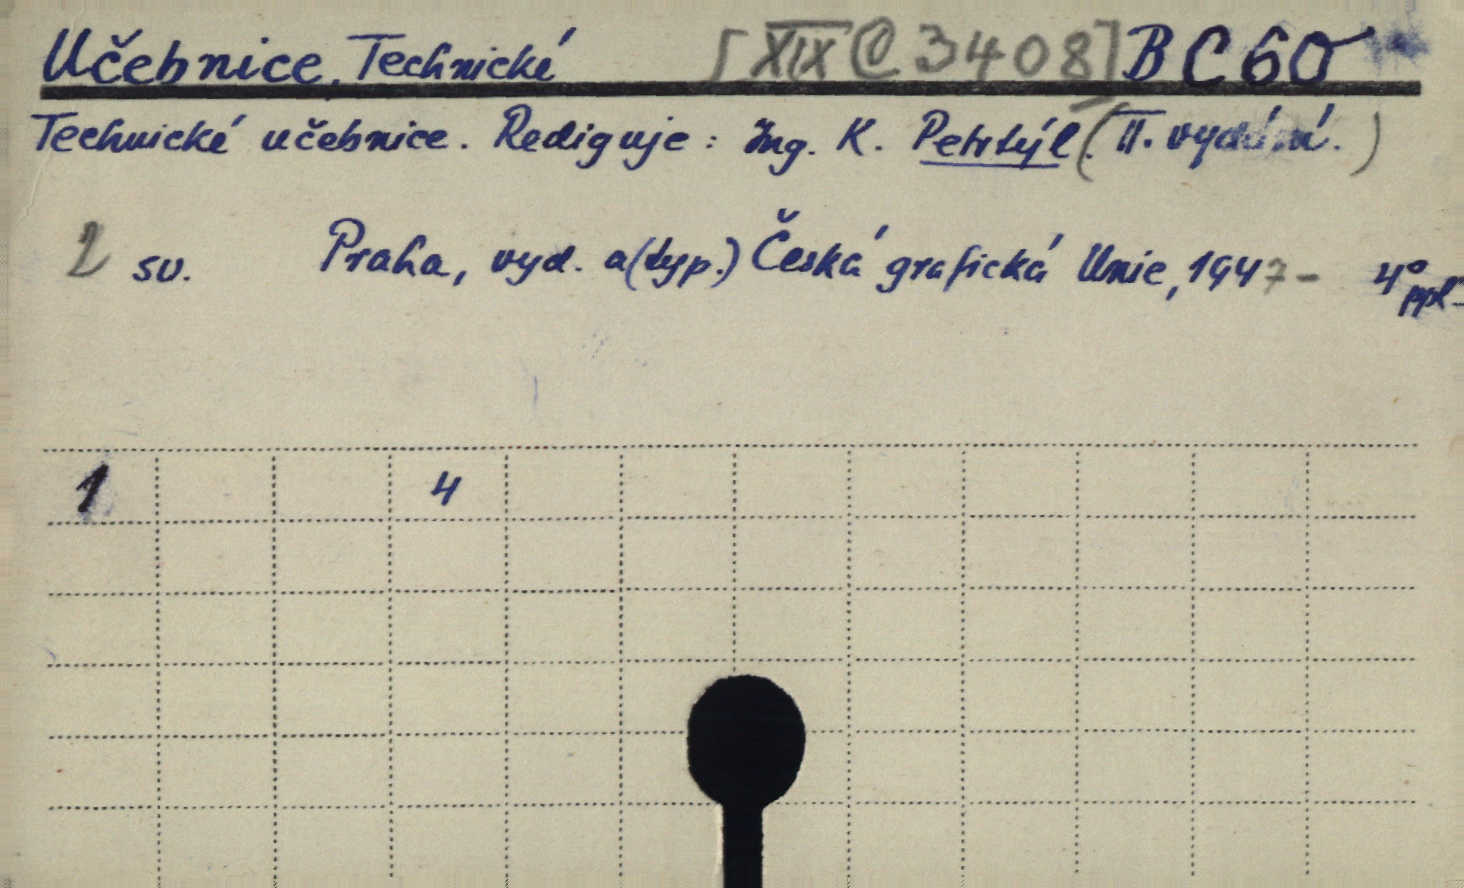 Učebnice, Technické [XIX C 3408] BC 60
Technické učebnice. Rediguje: Ing. K. Petrtýl. (II. vydání.)
2 sv. Praha, vyd. a (typ.) Česká grafická Unie, 1947- 4° ppl.
1 4